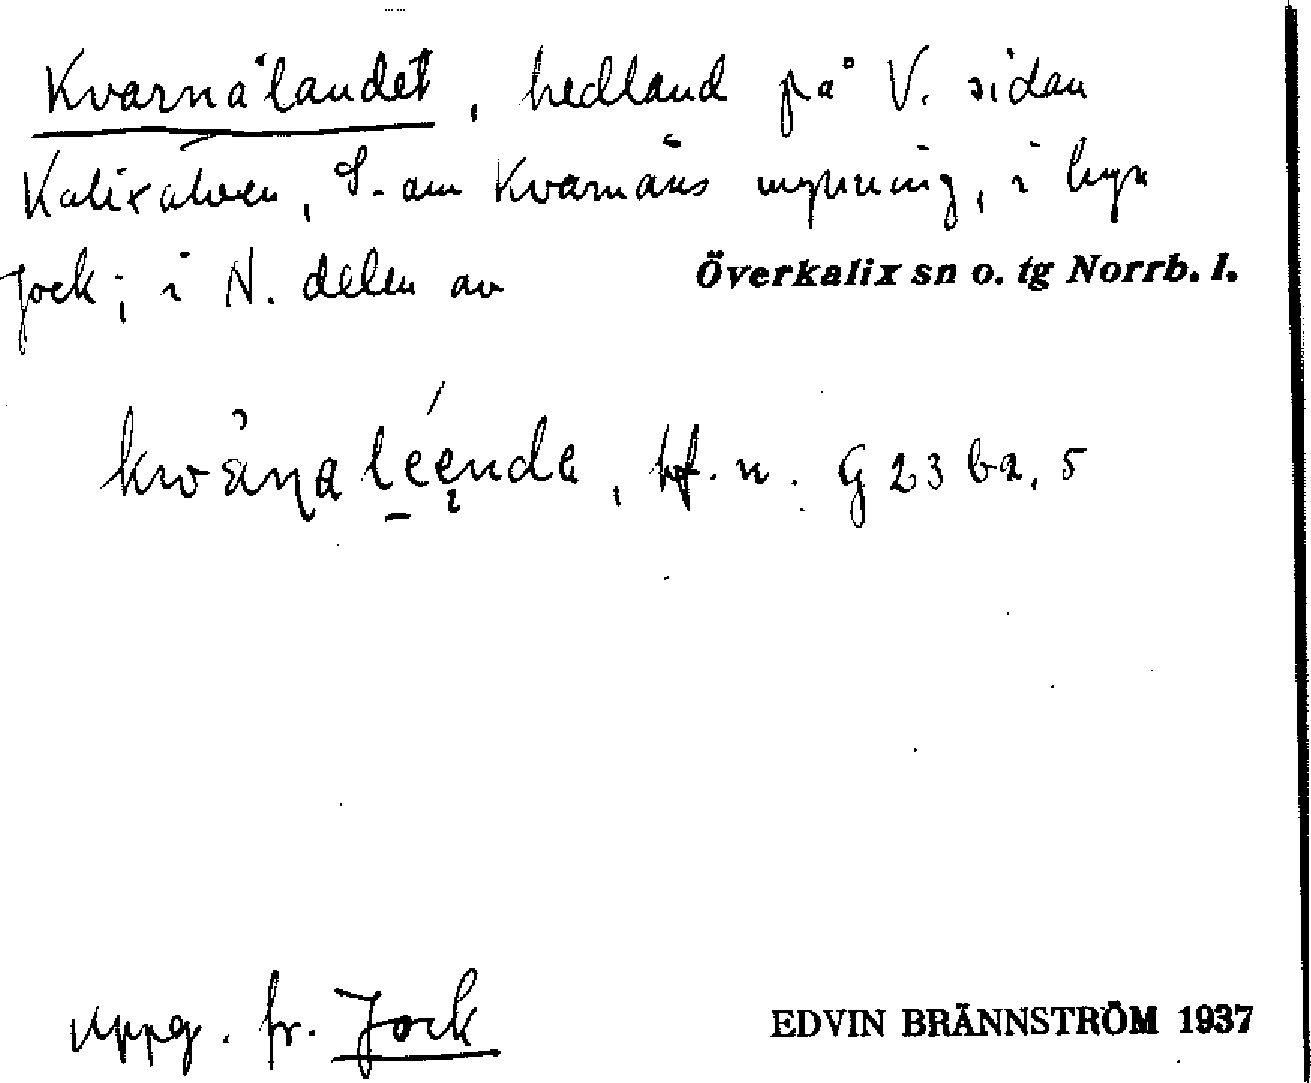 Kvarnålandet, hedland på V. sidan
Kalixälven, S. om Kvarnåns mynning, i byn
Jock; i N. delen av Överkalix sn o. tg Norrb. l.
bf. n. G 23 b2, 5
uppg. fr. Jock
EDVIN BRÄNNSTRÖM 1937